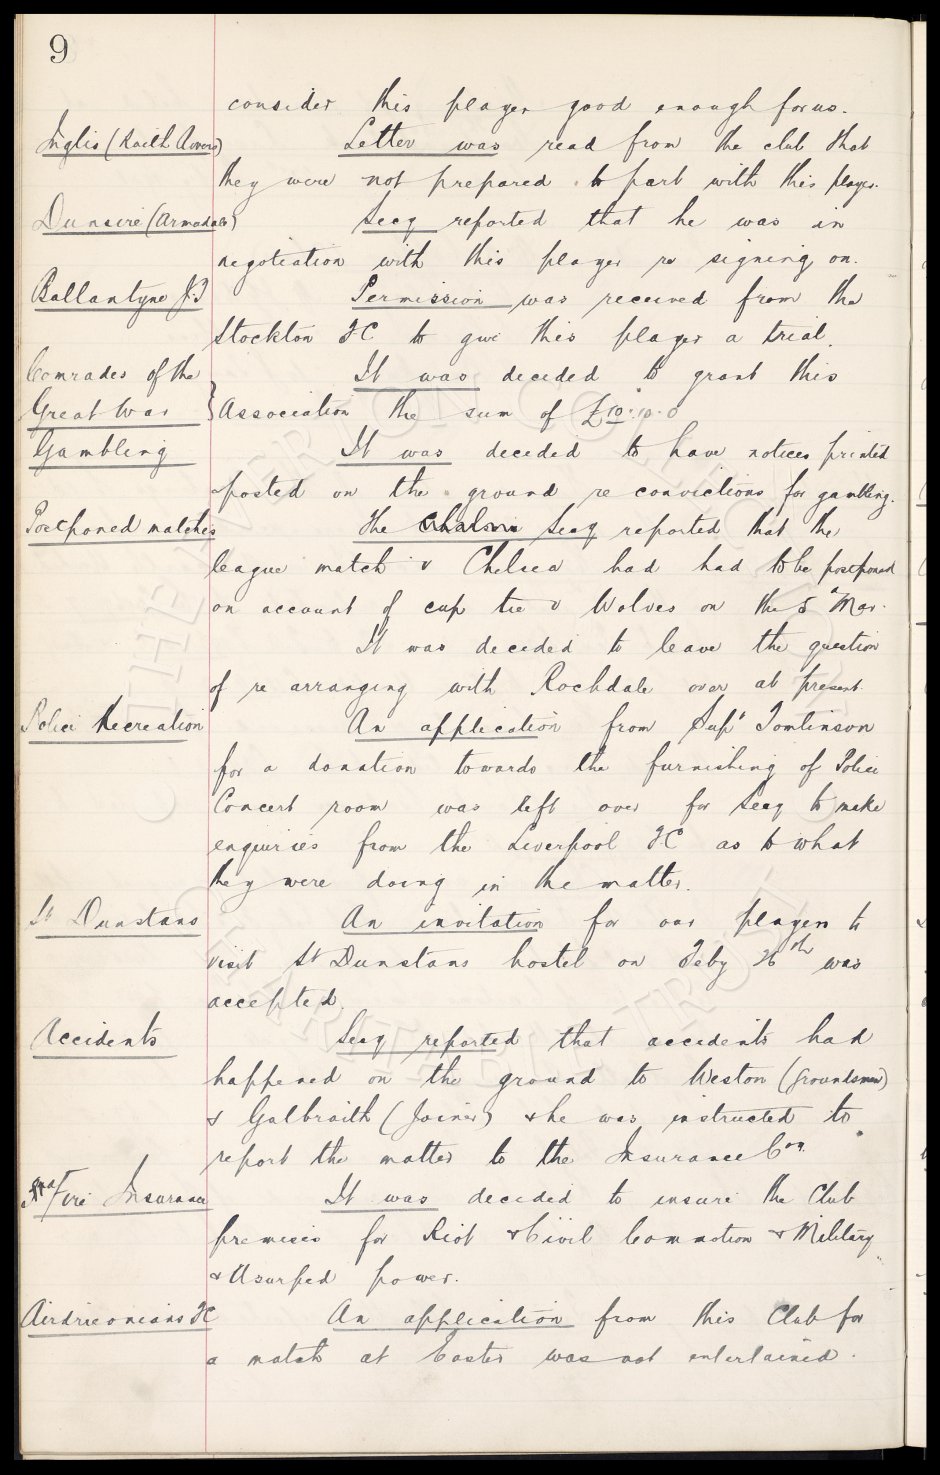 9
consider this player good enough for us.
Inglis (Raith Rovers) Letter was read from the club that
they were not prepared to part with this player.
Dunsire (Armadale) Secy reported that he was in
negotiation with this player re signing on.
Ballantyne J.J Permission was received from the
Stockton FC to give this player a trial.
Comrades of the It was decided to grant this
Great War } Association the sum of £10.10.0
Gambling It was decided to have notices printed
& posted on the ground re convictions for gambling.
Postponed matches The Secy reported that the
league match v Chelsea had had to be postponed
on account of cup tie v Wolves on the 5 Mar.
It was decided to leave the question
of re arranging with Rochdale over at present.
Police Recreation An application from Supt Tomlinson
for a donation towards the furnishing of Police
Concert room was left over for Secy to make
enquiries from the Liverpool FC as to what
they were doing in the matter.
St Dunstans An invitation for our players to
visit St Dunstans hostel on Feby 26th was
accepted.
Accidents Secy reported that accidents had
happened on the ground to Weston (Groundsman)
& Galbraith (Joiner) & he was instructed to
report the matter to the Insurance Coy.
Fire Insurance It was decided to insure the Club
premises for Riot & Civil Commotion & Military
& Usurped power.
Airdrieonians FC An application from this Club for
a match at Easter was not entertained.
THE EVERTON COLLECTION
CHARITABLE TRUST